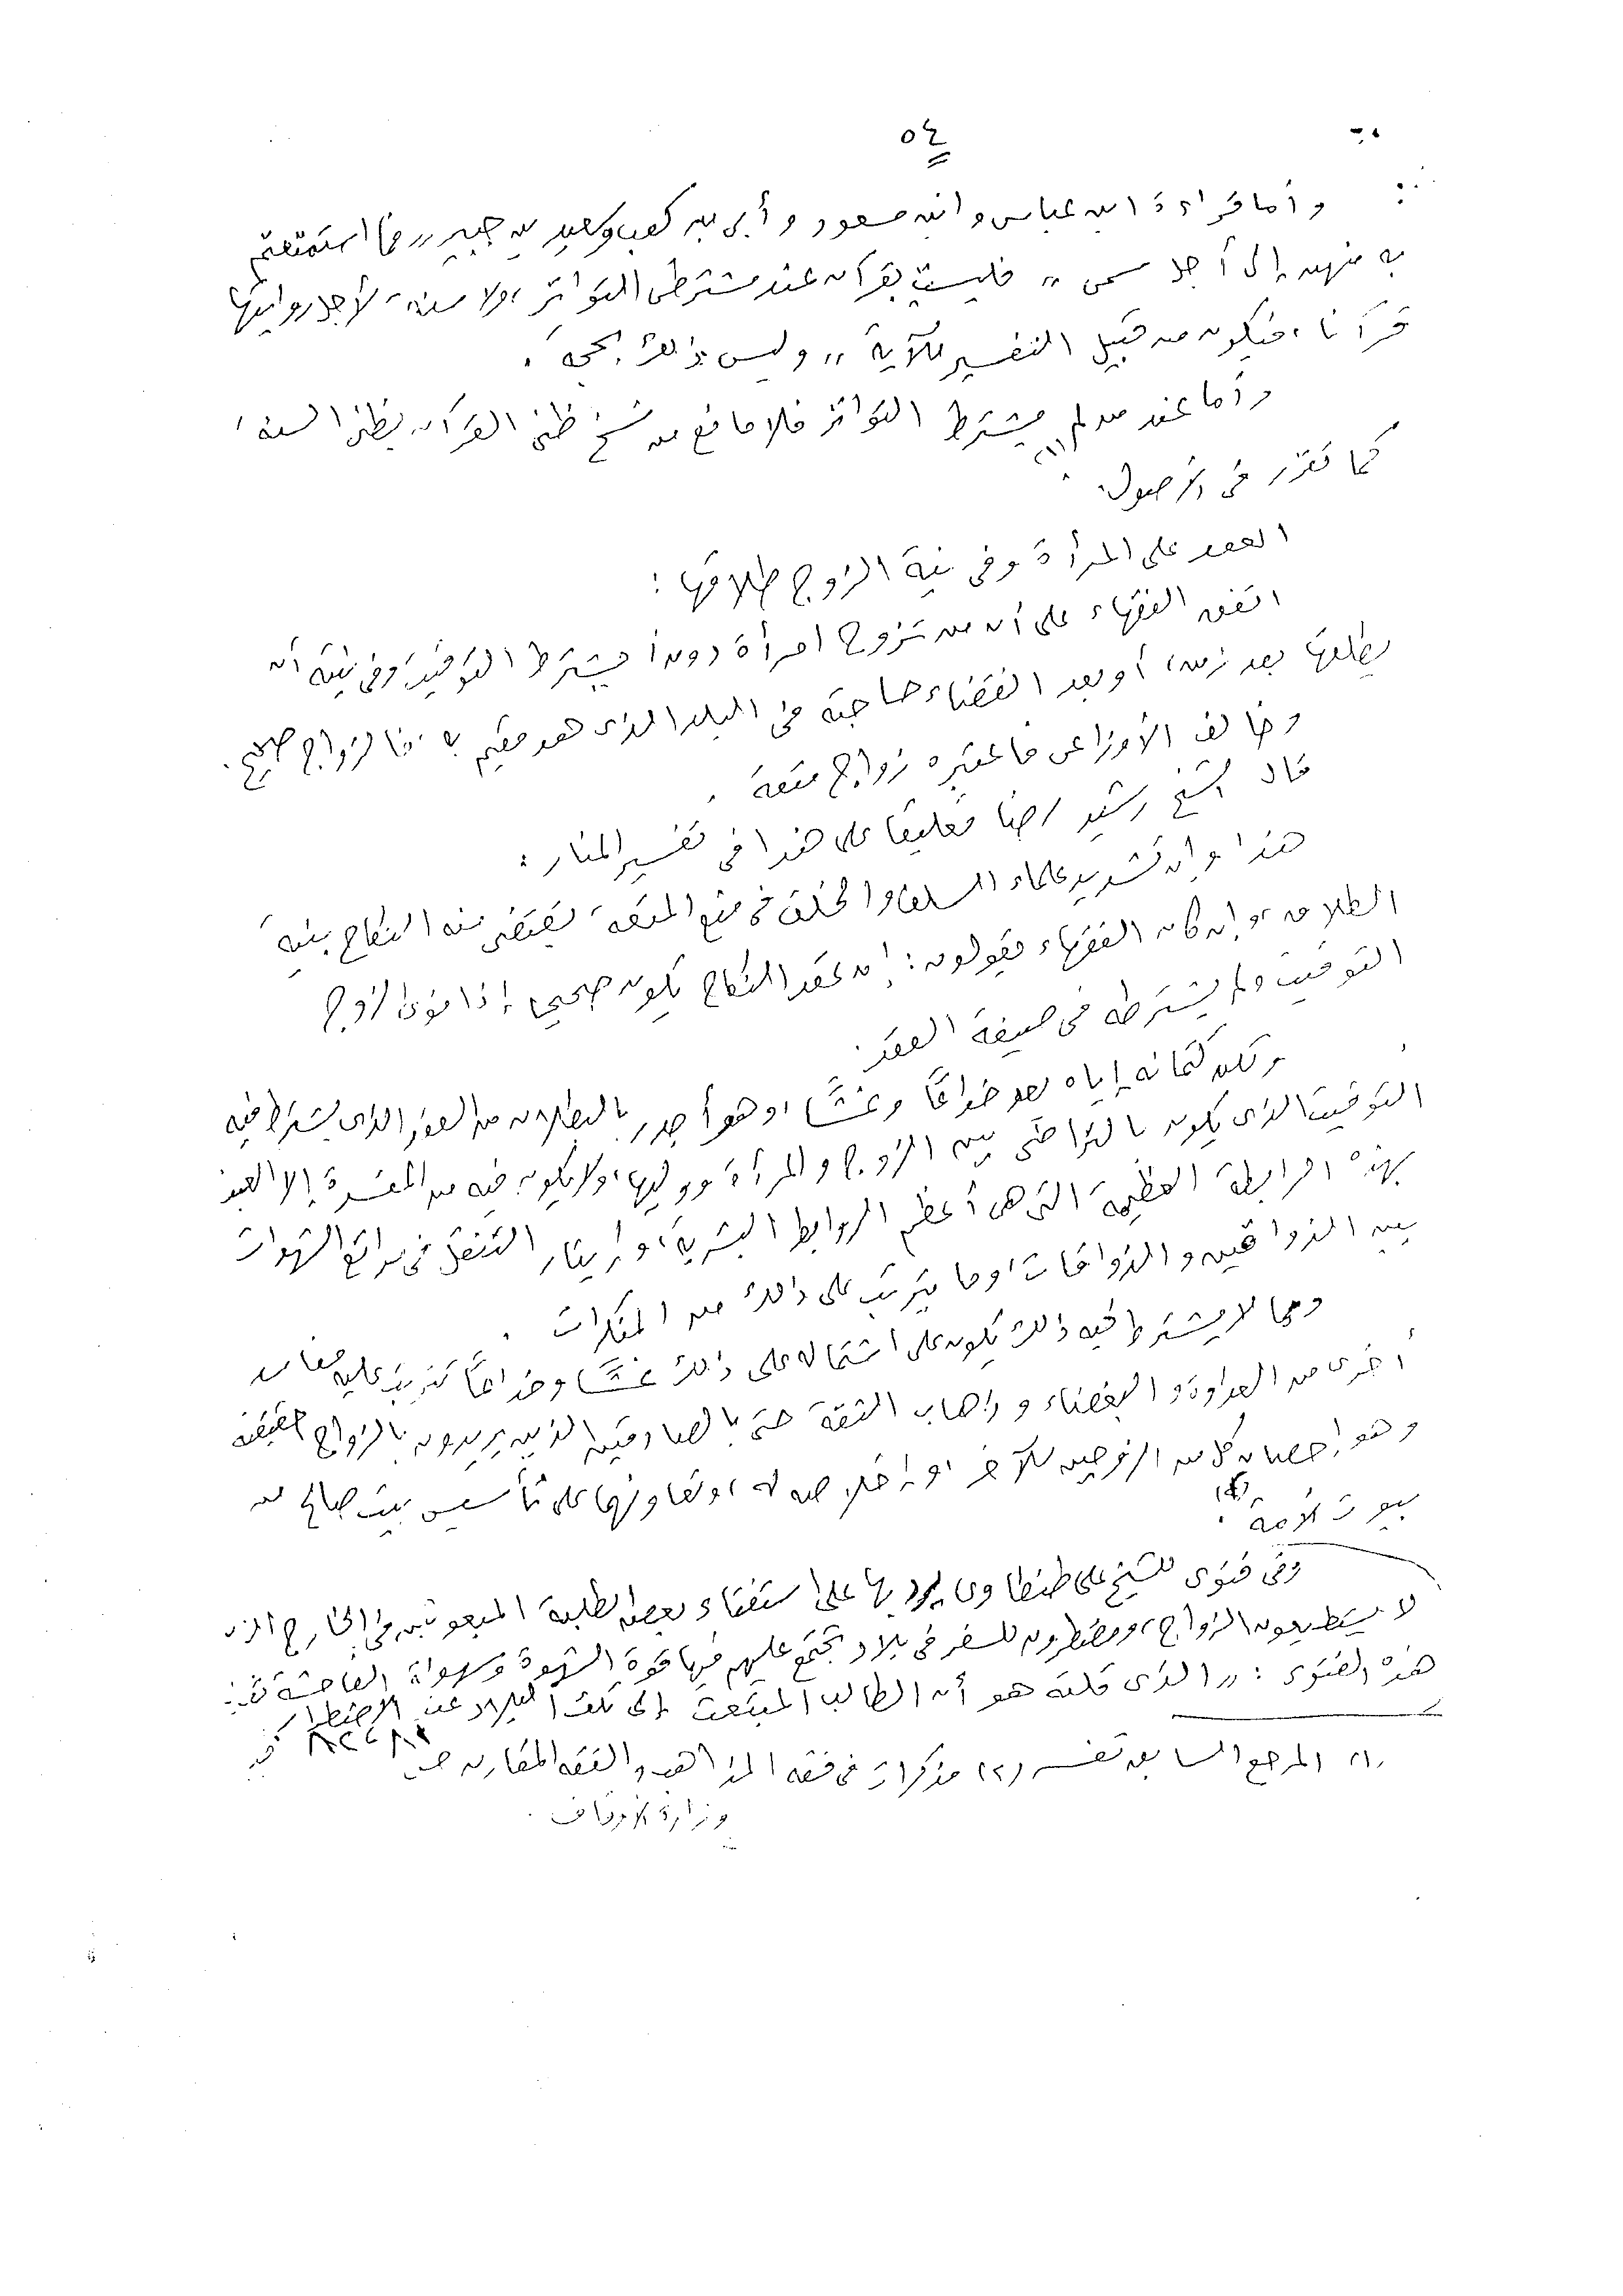 ٥٤
وأما قراءة ابن عباس وابن مسعود وأبى بن كعب وسعيد بن جبير ,, فما استمتعتم
به منهن إلى أجل مسمى ,, فليست بقرآن عند مشترطى التواتر ، ولا سنة ، لأجل روايتها
قرآنا ، فيكون من قبيل التفسير للآية ,, وليس ذلك بحجة .
وأما عند من لم يشترط التواتر فلا مانع من نسخ ظنى القرآن بظنى السنة ،
كما تقرر فى الأصول . (١)
العقد على المرأة وفى نية الزوج طلاقها :
اتفق الفقهاء على أن من تزوج امرأة دون أن يشترط التوقيت وفى نيته أن
يطلقها بعد زمن ، أو بعد انقضاء حاجته فى البلد الذى هو مقيم به ، فالزواج صحيح .
وخالف الأوزاعى فاعتبره زواج متعة .
قال الشيخ رشيد رضا تعليقا على هذا فى تفسير المنار :
هذا وإن تشديد علماء السلف والخلف فى منع المتعة ، يقتضى منع النكاح بنية
الطلاق ، وإن كان الفقهاء يقولون : إن عقد النكاح يكون صحيحا إذا نوى الزوج
التوقيت ولم يشترطه فى صيغة العقد .
ولكن كتمانه إياه يعد خداعًا وغشًا ، وهو أجدر بالبطلان من العقد الذى يشترط فيه
التوقيت الذى يكون بالتراضى بين الزوج والمرأة ووليها ، ولا يكون فيه من المفسدة إلا العبث
بهذه الرابطة العظيمة التى هى أعظم الروابط البشرية ، وإيثار التنقل فى مراتع الشهوات
بين الذواقين والذواقات ، وما يترتب على ذلك من المنكرات .
وما لا يشترط فيه ذلك يكون على اشتماله على ذلك غشًا وخداعًا تترتب عليه مفاسد
أخرى من العداوة والبغضاء وذهاب الثقة حتى بالصادقين الذين يريدون بالزواج حقيقته
وهو إحصان كل من الزوجين للآخر ، وإخلاصه له ، وتعاونهما على تأسيس بيت صالح من
بيوت الأمة . (٢)
وفى فتوى للشيخ على طنطاوى يرد بها على استفتاء بعض الطلبة المبعوثين فى الخارج الذين
لا يستطيعون الزواج ، ومضطرون للسفر فى بلاد تجتمع عليهم فيها قوة الشهوة وسهولة الفاحشة
هذه الفتوى : ,, الذى قلته هو أن الطالب المبتعث إلى تلك البلاد عند الاضطرار
(١) المرجع السابق نفسه (٢) مذكرات فى فقه المذاهب والفقه المقارن
وزارة الأوقاف .